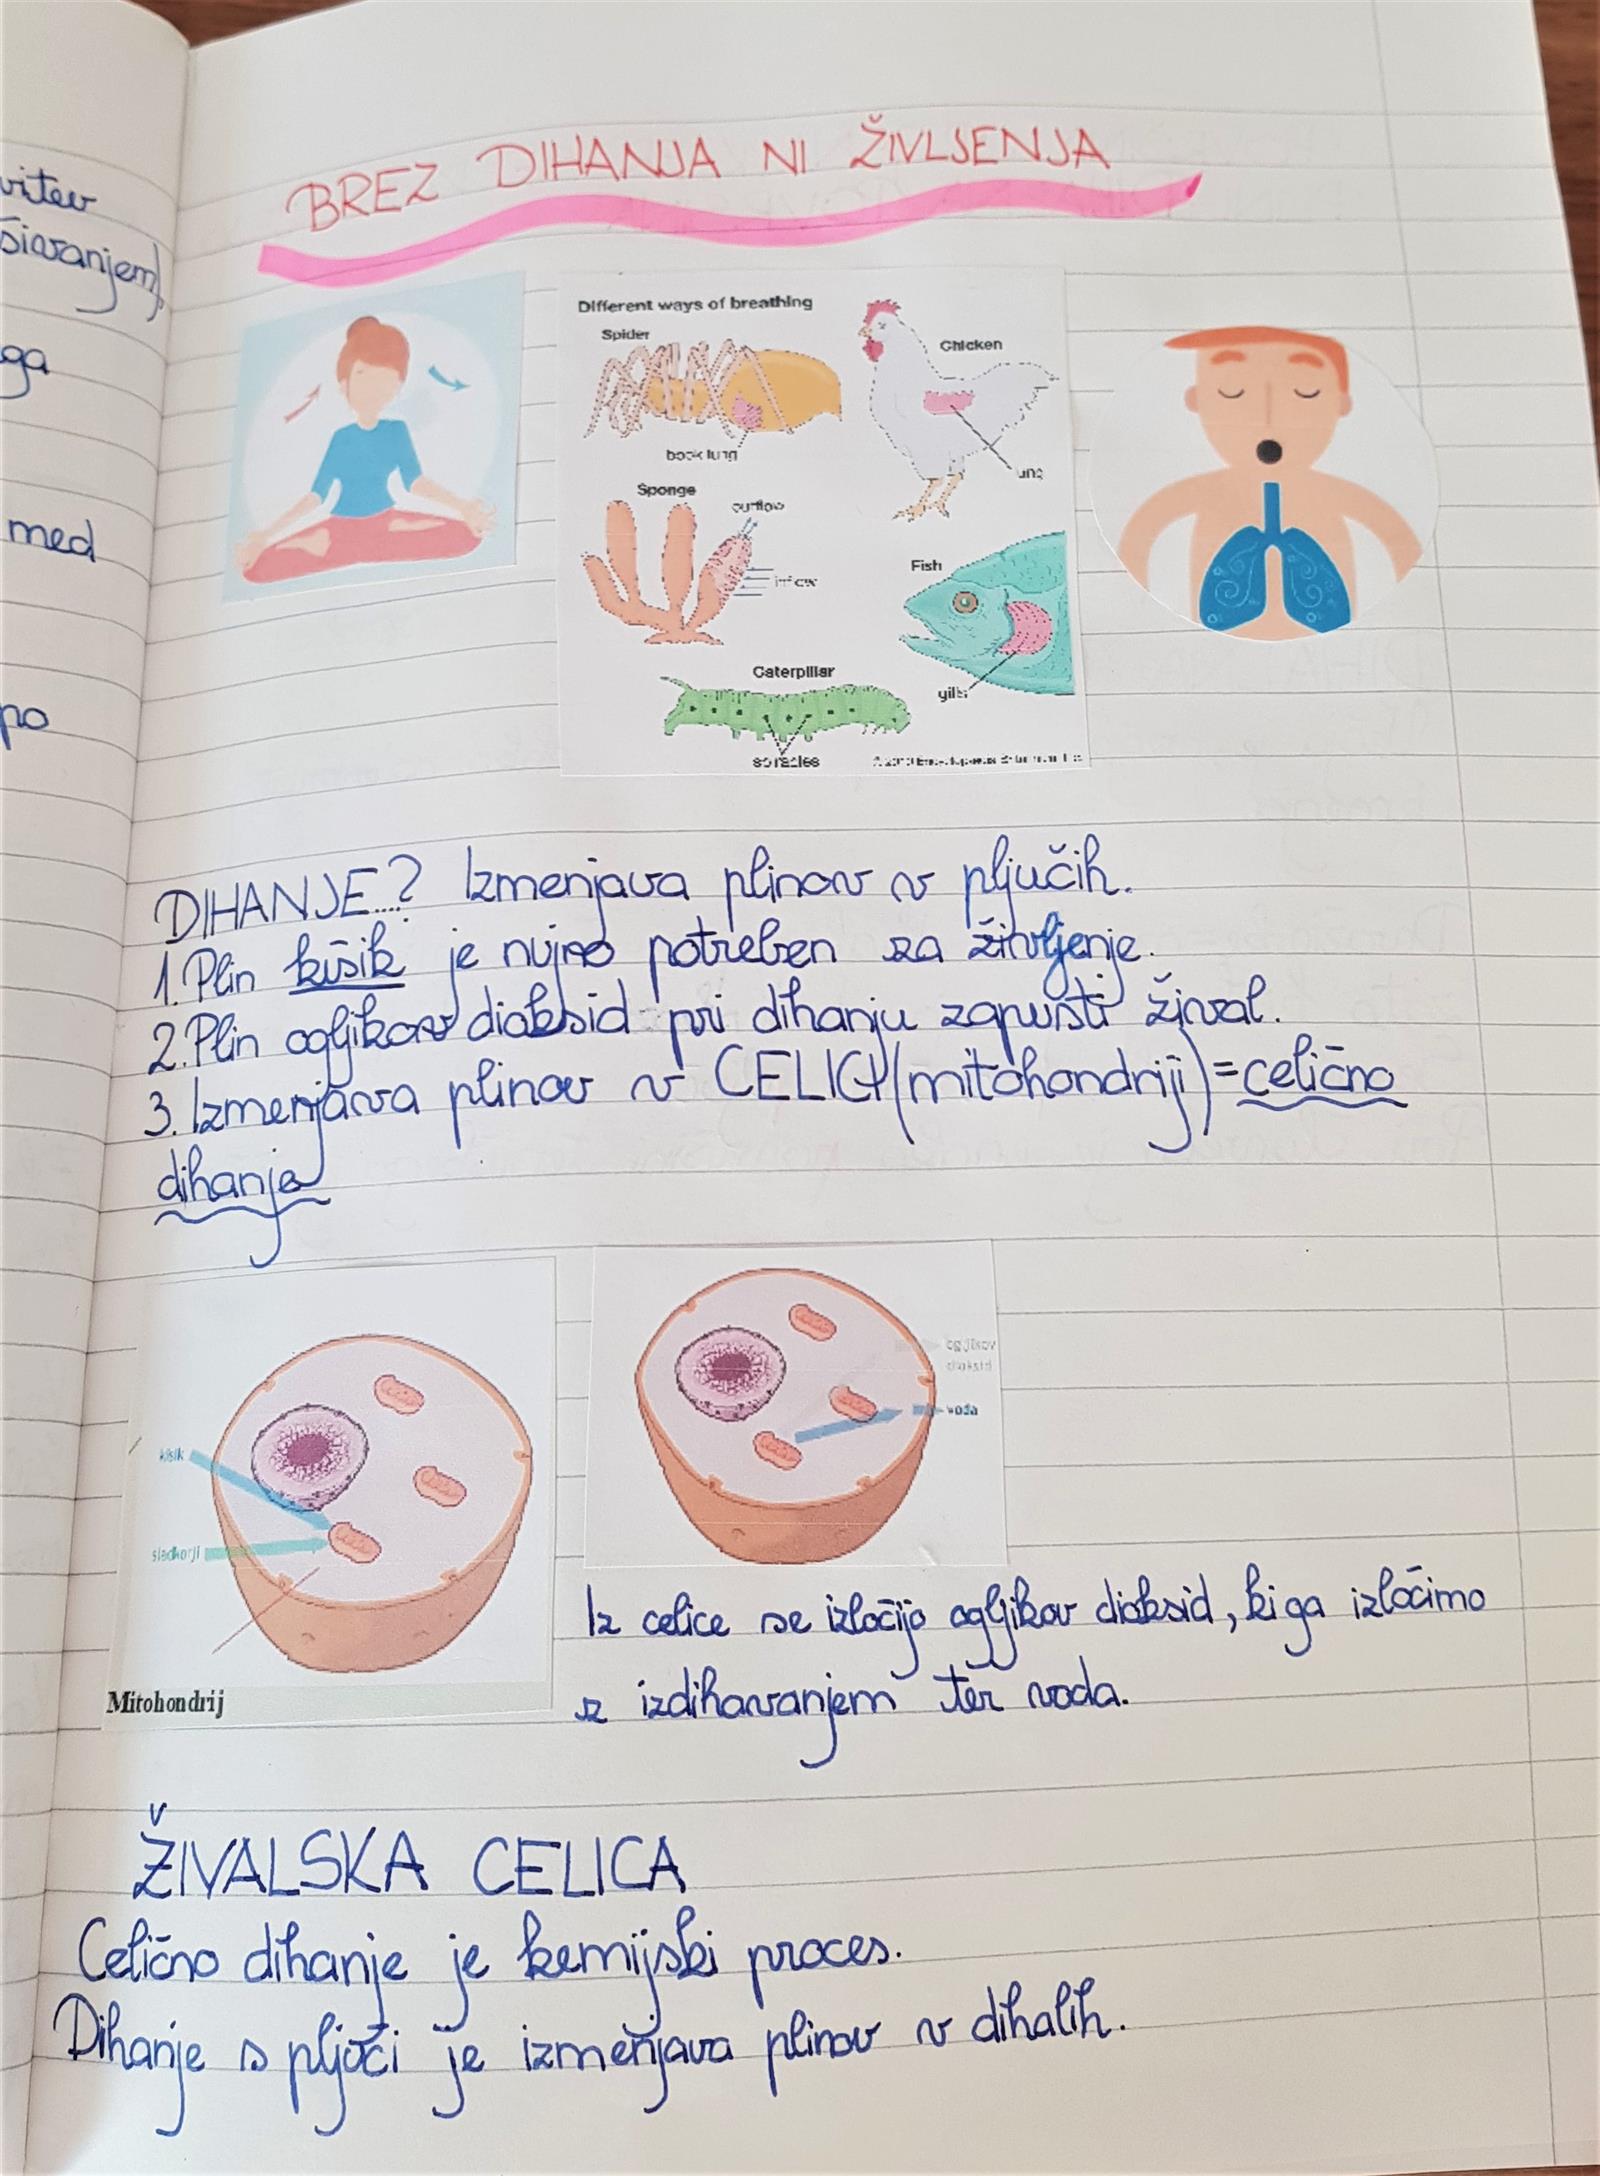 vitev
ga
med
po
BREZ DIHANJA NI ŽIVLJENJA
Different ways of breathing
Spider
book lung
Chicken
Sponge
outflow
inflow
Fish
gills
Caterpillar
spiracles
DIHANJE...? Izmenjava plinov v pljučih.
1. Plin kisik je nujno potreben za življenje.
2. Plin ogljikov dioksid pri dihanju zapusti žival.
3. Izmenjava plinov v CELICI (mitohondriji) = celično
dihanje
kisik
sladkorji
Mitohondrij
ogljikov
dioksid
voda
Iz celice se izločijo ogljikov dioksid, ki ga izločimo
z izdihavanjem ter voda.
ŽIVALSKA CELICA
Celično dihanje je kemijski proces.
Dihanje s pljuči je izmenjava plinov v dihalih.